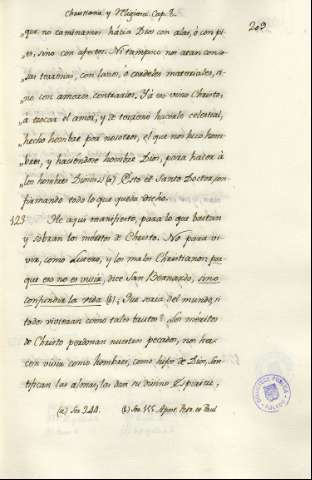 Christiana, y Religiosa. Cap. 8.
203
„que no caminamos hácia Dios con alas, ó con pi-
„es, sino con afectos. Ni tampoco nos atan con vi-
„les terrenos, con lazos, ó cordeles materiales, si-
„no con amores contrarios. Yá es vino Christo,
„á trocar el amor, y de terreno hacerlo celestial,
„hecho hombre por nosotros, el que nos hizo hom-
„bres, y haciendose hombre Dios, para hacer á
„los hombres Dioses: (a) Esto el Santo Doctor, con-
firmando todo lo que queda dicho.
123 He aqui manifiesto, para lo que bastan
y sobran los meritos de Christo. No para vi-
vir, como Lutero, y los malos Christianos por-
que eso no es vivir, dice San Bernardo, sino
confundir la vida (b): Que seria del mundo, si
todos vivieran como tales brutos? Los meritos
de Christo perdonan nuestros pecados, nos ha-
cen vivir como hombres, como hijos de Dios, san-
tifican las almas, las dan su divino Espiritu,
(a) Ser. 240. (b) Ser.